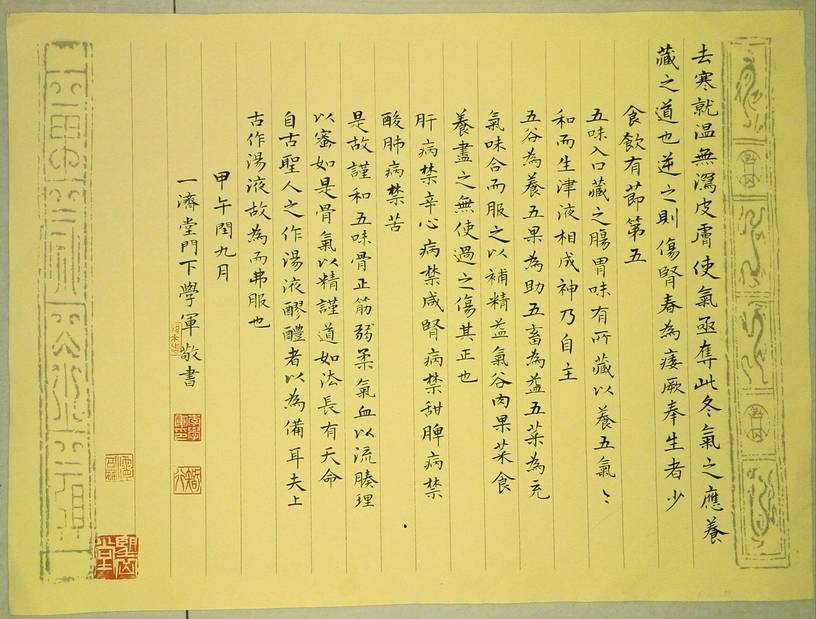 去寒就温無瀉皮膚使氣亟奪此冬氣之應養
藏之道也逆之則傷腎春為痿厥奉生者少
食飲有節第五
五味入口藏之腸胃味有所藏以養五氣〻
和而生津液相成神乃自主
五谷為養五果為助五畜為益五菜為充
氣味合而服之以補精益氣谷肉果菜食
養盡之無使過之傷其正也
肝病禁辛心病禁咸腎病禁甜脾病禁
酸肺病禁苦
是故謹和五味骨正筋弱柔氣血以流腠理
以審如是骨氣以精謹道如法長有天命
自古聖人之作湯液醪醴者以為備耳夫上
古作湯液故為而弗服也
甲午閏九月
一濟堂門下學軍敬書